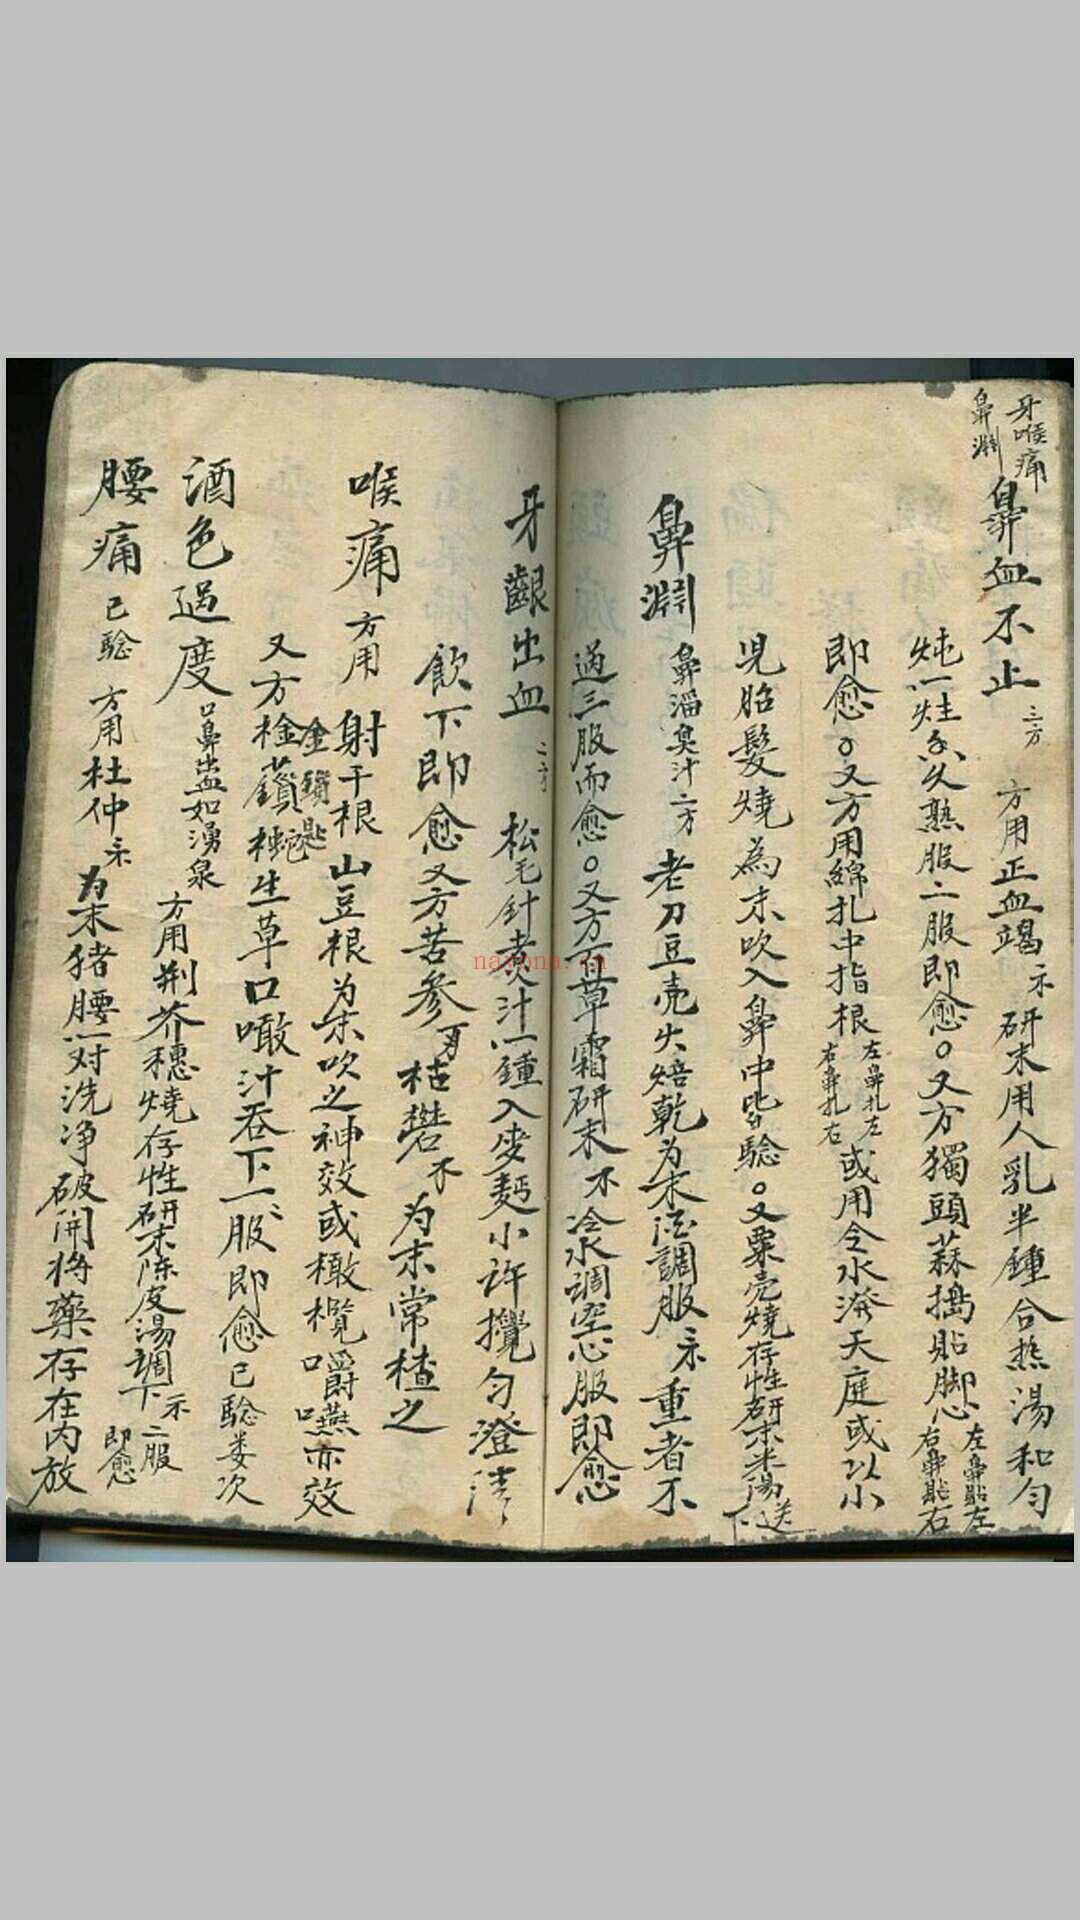 牙喉痛
鼻淵
鼻血不止 三方 方用正血竭 研末用人乳半鍾合热湯和匀
炖一炷香久熟服二服即愈。又方獨頭蒜搗貼脚心 左鼻貼左 右鼻貼右
即愈。又方用綿扎中指根 左鼻扎左 右鼻扎右 或用令水淹天庭或以小
児胎髮燒為末吹入鼻中皆驗。又粟壳燒存性研末米湯送下
鼻淵 鼻淄臭汁二方 老刀豆壳火焙乾为末酒調服 重者不
過三服而愈。又方百草霜研末 冷水調空心服即愈
牙齦出血 二方 松毛針煮汁一鍾入麥麪小許攪匀澄清
飲下即愈又方苦參 枯礬 为末常揸之
喉痛 方用 射干根山豆根为末吹之神效或橄欖口嚼燕亦效
又方 金鎖匙 生草口噉汁吞下一服即愈已驗娄次
酒色過度 口鼻盅如湧泉 方用荆芥穗燒存性研末陈皮湯調下 二服即愈
腰痛 已驗 方用杜仲 为末猪腰一对洗净破開将藥存在内放
nayona.cn